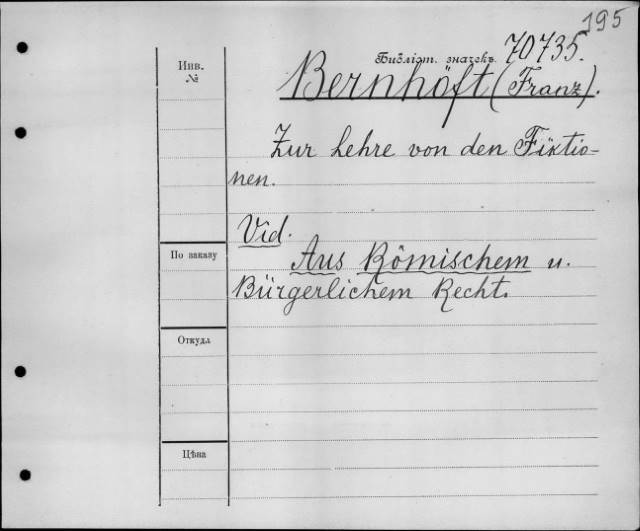 195
Библіот. значекъ 70735.
Инв.
№
Bernhöft (Franz).
Zur Lehre von den Fiktio-
nen.
Vid.
Aus Römischem u.
Bürgerlichem Recht.
По заказу
Откуда
Цѣна